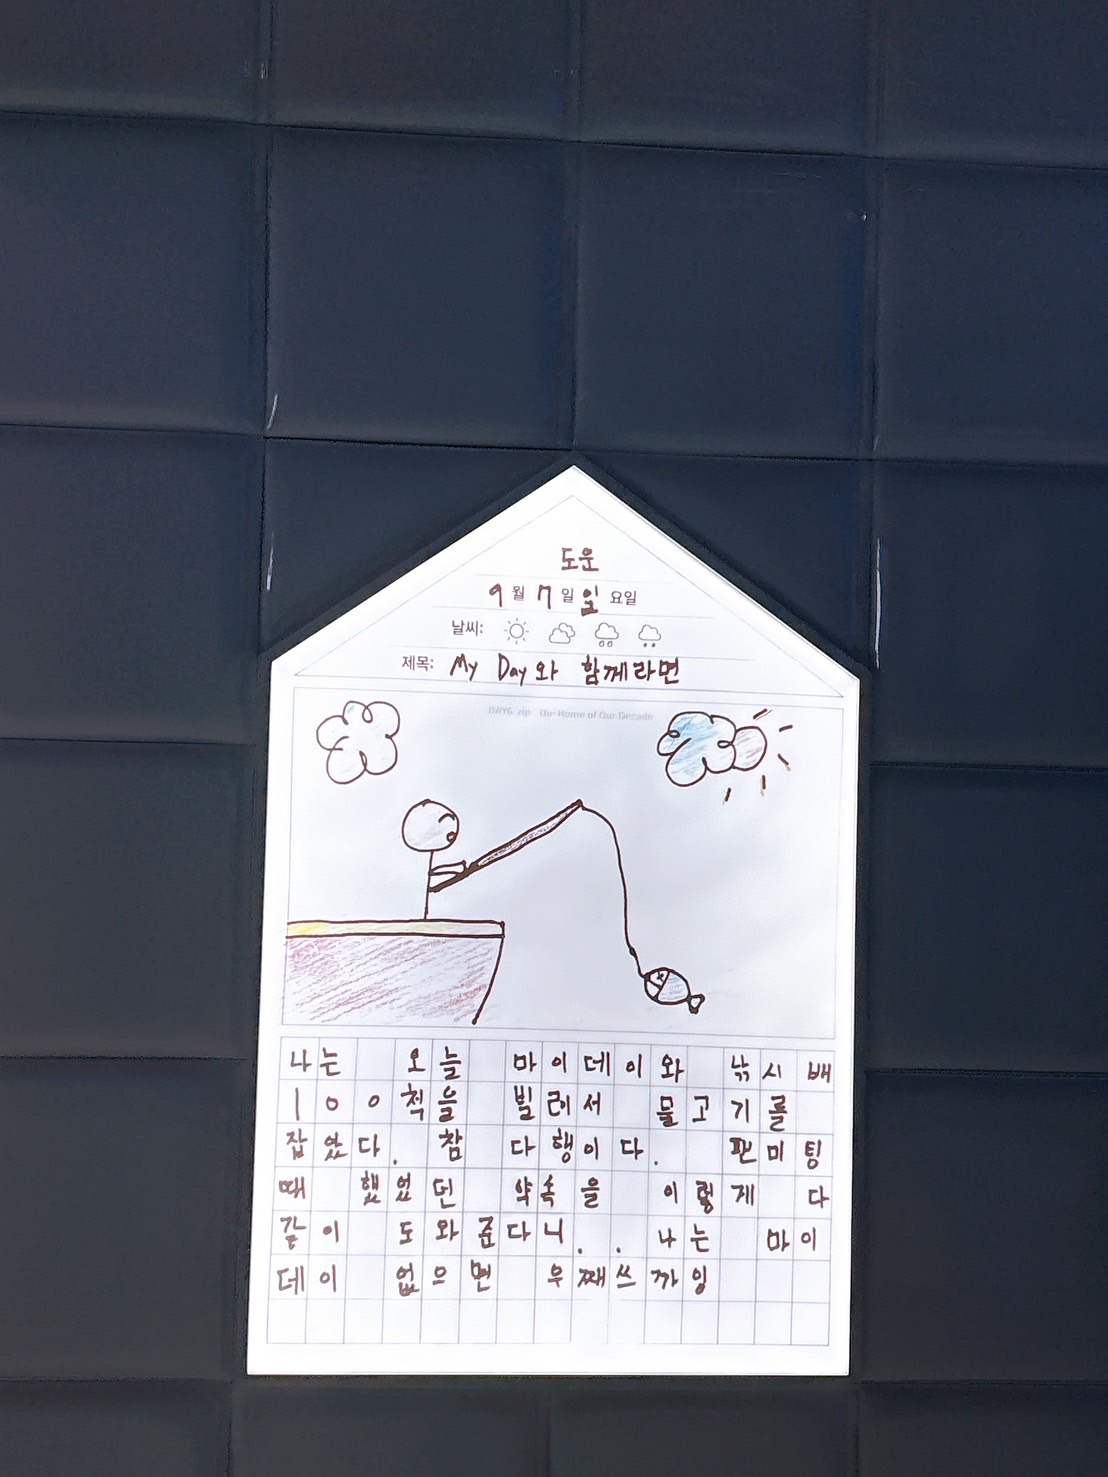 도운
9월 7일 일요일
날씨:
제목: My Day와 함께라면
DAY6 .zip : The Home of Our Decade
나는 오늘 마이데이와 낚시 배
100척을 빌려서 물고기를
잡았다. 참 다행이다. 팬미팅
때 했었던 약속을 이렇게 다
같이 도와준다니.. 나는 마이
데이 없으면 우째쓰까잉